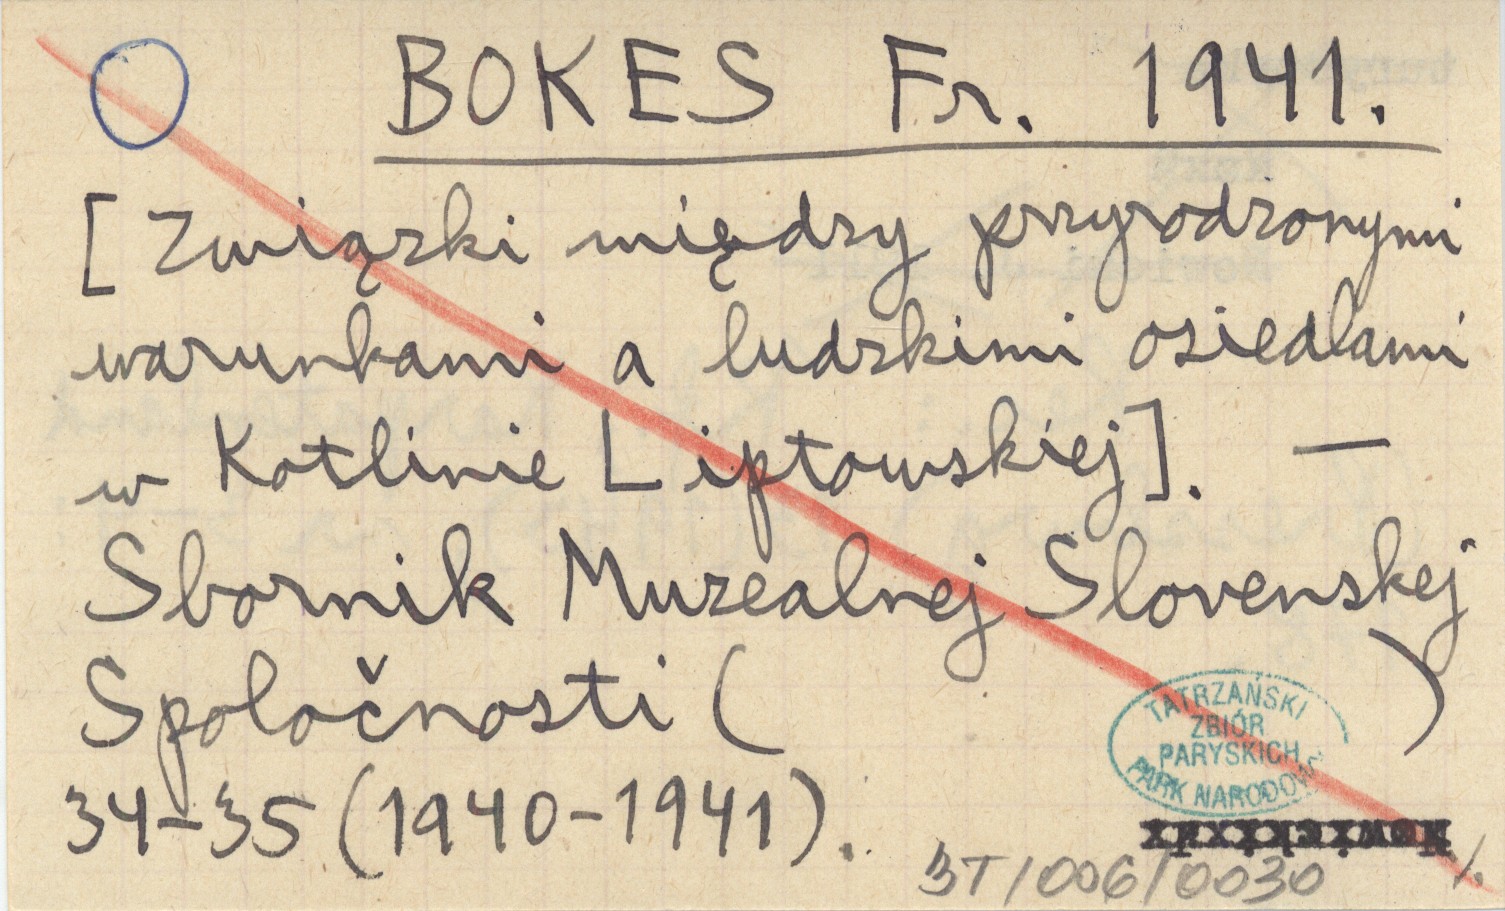 BOKES Fr. 1941.
[Związki między przyrodzonymi
warunkami a ludzkimi osiedlami
w Kotlinie Liptowskiej]. —
Sbornik Muzealnej Slovenskej
Spoločnosti ( )
34-35 (1940-1941).
TATRZAŃSKI
ZBIÓR
PARYSKICH
PARK NARODOWY
BT/006/0030